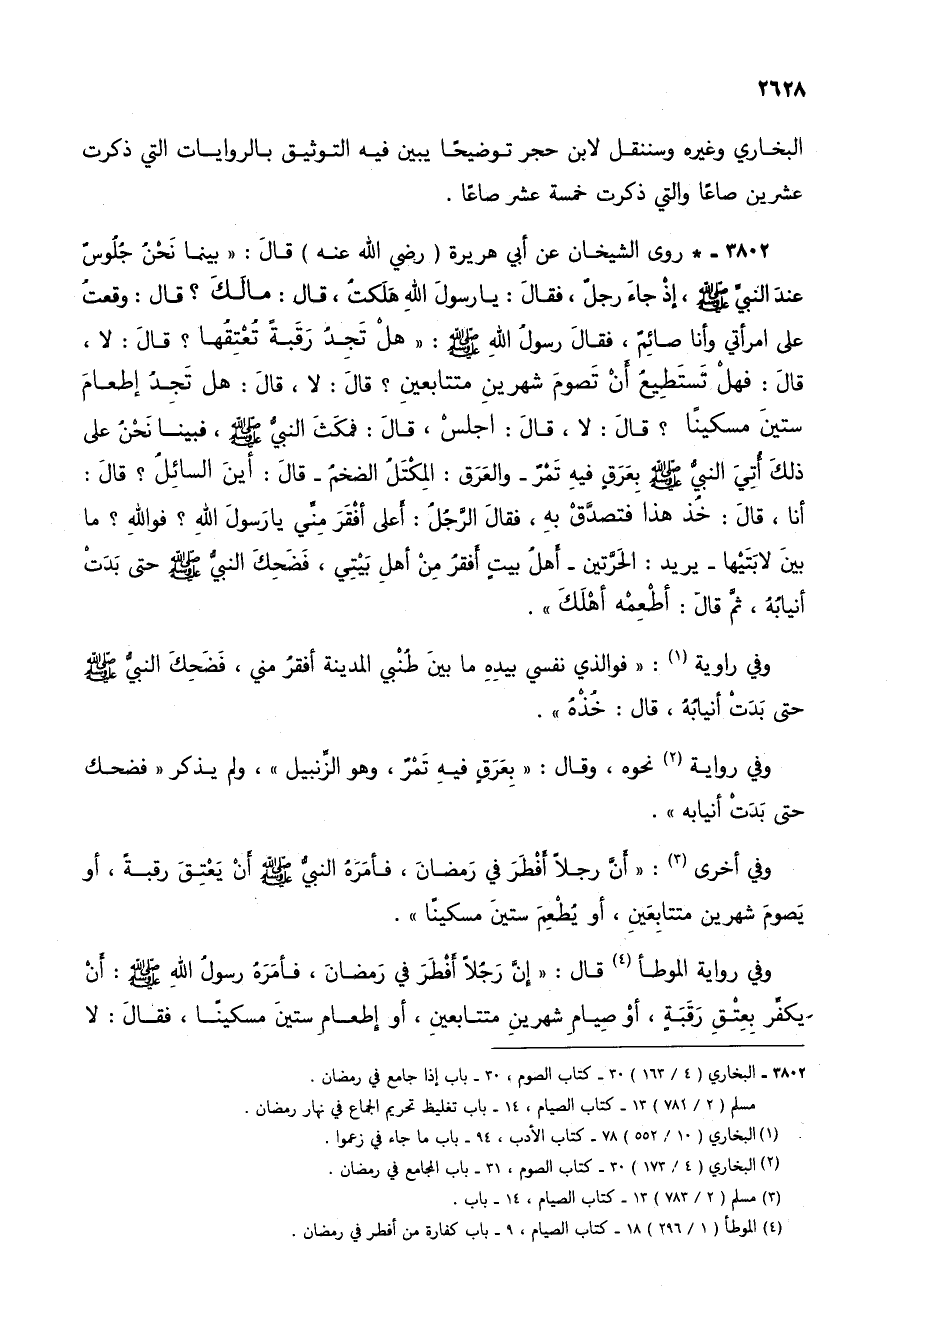 ٢٦٢٨
البخاري وغيره وسننقل لابن حجر توضيحًا يبين فيه التوثيق بالروايات التي ذكرت
عشرين صاعًا والتي ذكرت خمسة عشر صاعًا .
٣٨٠٢ - * روى الشيخان عن أبي هريرة ( رضي الله عنه ) قالَ : « بينما نَحْنُ جُلُوسٌ
عندَ النبيِّ ﷺ ، إذْ جاءَ رجلٌ ، فقالَ : يارسولَ اللهِ هَلَكتُ ، قال : مالَكَ ؟ قال : وقعتُ
على امرأتي وأنا صائِمٌ ، فقالَ رسولُ اللهِ ﷺ : « هلْ تَجِدُ رَقَبةً تُعْتِقُها ؟ قالَ : لا ،
قالَ : فهلْ تَستَطِيعُ أنْ تَصومَ شهرينِ متتابعينِ ؟ قالَ : لا ، قالَ : هل تَجدُ إطعامَ
ستينَ مسكينًا ؟ قالَ : لا ، قالَ : اجلسْ ، قالَ : فمكَثَ النبيُّ ﷺ ، فبينا نَحْنُ على
ذلكَ أُتِيَ النبيُّ ﷺ بِعَرَقٍ فيهِ تَمْرٌ - والعَرَق : المِكْتَلُ الضخمُ - قالَ : أينَ السائِلُ ؟ قالَ :
أنا ، قالَ : خُذ هذا فتصدَّقْ بهِ ، فقالَ الرَّجُلُ : أعلى أفْقَرَ مِنِّي يارَسولَ اللهِ ؟ فواللهِ ؟ ما
بينَ لابَتَيْها - يريد : الحَرَّتينِ - أهلُ بيتٍ أفقرُ مِنْ أهلِ بَيْتِي ، فَضَحِكَ النبيُّ ﷺ حتى بَدَتْ
أنيابُهُ ، ثمَّ قالَ : أطْعِمْه أهْلَكَ » .
وفي راوية (١) : « فوالذي نفسي بيدِهِ ما بينَ طُنْبي المدينة أفقرُ مني ، فَضَحِكَ النبيُّ ﷺ
حتى بَدَتْ أنيابُهُ ، قال : خُذْهُ » .
وفي روايـة (٢) نحوه ، وقـال : « بِعَرَقٍ فيـهِ تَمْرٌ ، وهو الزِّنبيل » ، ولم يـذكر « فضحـك
حتى بَدَتْ أنيابه » .
وفي أخرى (٣) : « أنَّ رجلاً أفْطَرَ في رَمضانَ ، فـأمَرَهُ النبيُّ ﷺ أنْ يَعْتِـقَ رقبـةً ، أو
يَصومَ شهرينِ متتابعَينِ ، أو يُطْعِمَ ستينَ مسكينًا » .
وفي رواية الموطأ (٤) قال : « إنَّ رَجُلاً أفْطَرَ في رَمضانَ ، فـأمَرَهُ رسولُ اللهِ ﷺ : أنْ
يكفِّر بِعِتْقِ رَقَبَةٍ ، أوْ صِيامِ شهرينِ متتابعينِ ، أو إطعامِ ستينَ مسكينًا ، فقـالَ : لا
٣٨٠٢ - البخاري ( ٤ / ١٦٣ ) ٣٠ - كتاب الصوم ، ٣٠ - باب إذا جامع في رمضان .
مسلم ( ٢ / ٧٨١ ) ١٣ - كتاب الصيام ، ١٤ - باب تغليظ تحريم الجماع في نهار رمضان .
(١) البخاري ( ١٠ / ٥٥٢ ) ٧٨ - كتاب الأدب ، ٩٤ - باب ما جاء في زعموا .
(٢) البخاري ( ٤ / ١٧٣ ) ٣٠ - كتاب الصوم ، ٣١ - باب المجامع في رمضان .
(٣) مسلم ( ٢ / ٧٨٣ ) ١٣ - كتاب الصيام ، ١٤ - باب .
(٤) الموطأ ( ١ / ٢٩٦ ) ١٨ - كتاب الصيام ، ٩ - باب كفارة من أفطر في رمضان .